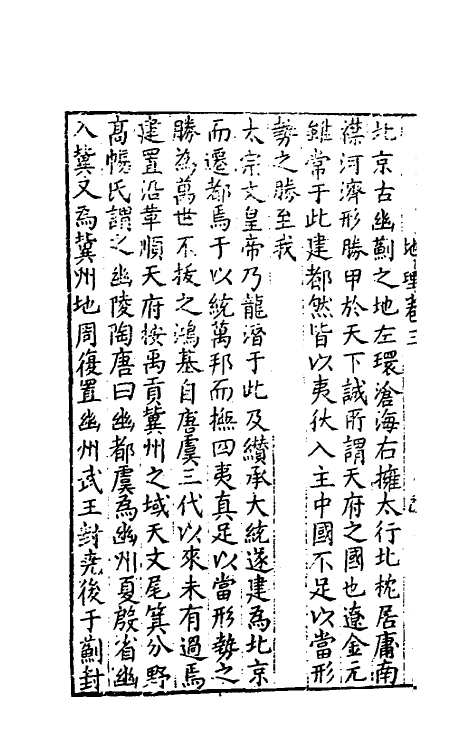 地理卷三
北京古幽薊之地左環滄海右擁太行北枕居庸南
襟河濟形勝甲於天下誠所謂天府之國也遼金元
雖常于此建都然皆以夷狄入主中國不足以當形
勢之勝至我
太宗文皇帝乃龍潛于此及纘承大統遂建為北京
而遷都焉于以統萬邦而撫四夷真足以當形勢之
勝為萬世不拔之鴻基自唐虞三代以來未有過焉
建置沿革順天府按禹貢冀州之域天文尾箕分野
高暢氏謂之幽陵陶唐曰幽都虞為幽州夏殷省幽
入冀又為冀州地周復置幽州武王封堯後于薊封